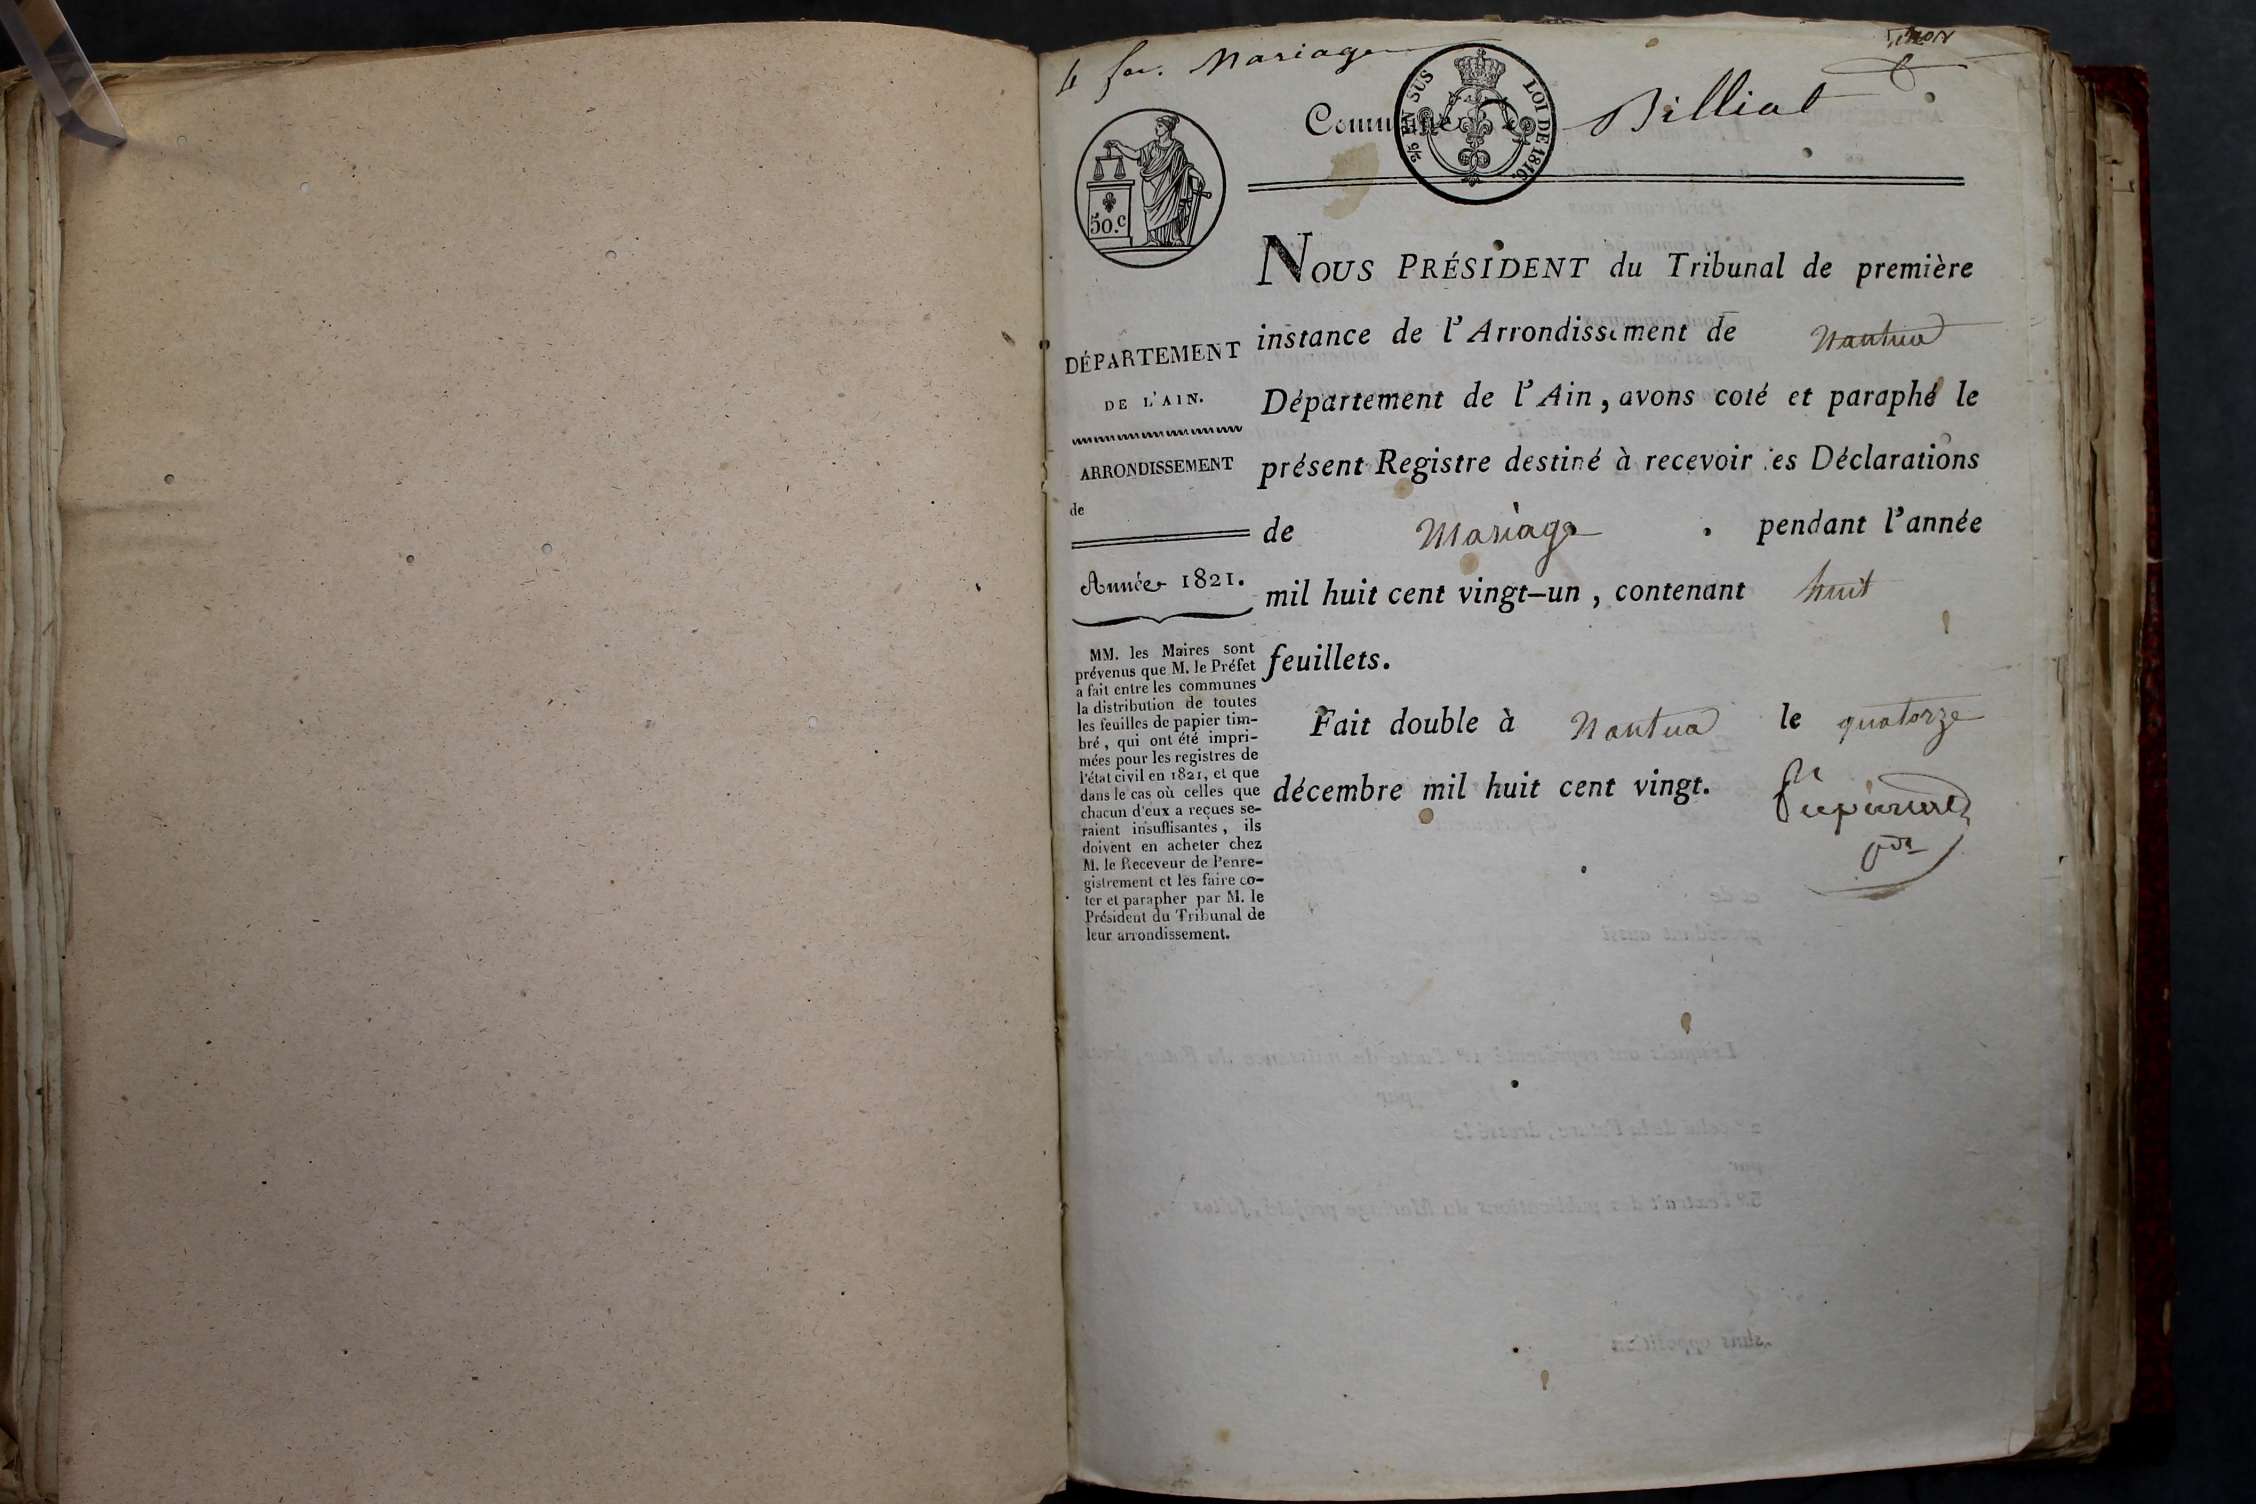 Mariage
Commune de Billiat
2/5 EN SUS LOI DE 1816.
50.c
DÉPARTEMENT
DE L'AIN.
ARRONDISSEMENT
de
Année 1821.
MM. les Maires sont
prévenus que M. le Préfet
a fait entre les communes
la distribution de toutes
les feuilles de papier tim-
bré, qui ont été impri-
mées pour les registres de
l'état civil en 1821, et que
dans le cas où celles que
chacun d'eux a reçues se-
raient insuffisantes, ils
doivent en acheter chez
M. le Receveur de l'enre-
gistrement et les faire co-
ter et parapher par M. le
Président du Tribunal de
leur arrondissement.
NOUS PRÉSIDENT du Tribunal de première
instance de l'Arrondissement de Nantua
Département de l'Ain, avons coté et paraphé le
présent Registre destiné à recevoir les Déclarations
de Mariage pendant l'année
mil huit cent vingt-un, contenant huit
feuillets.
Fait double à Nantua le quatorze
décembre mil huit cent vingt.